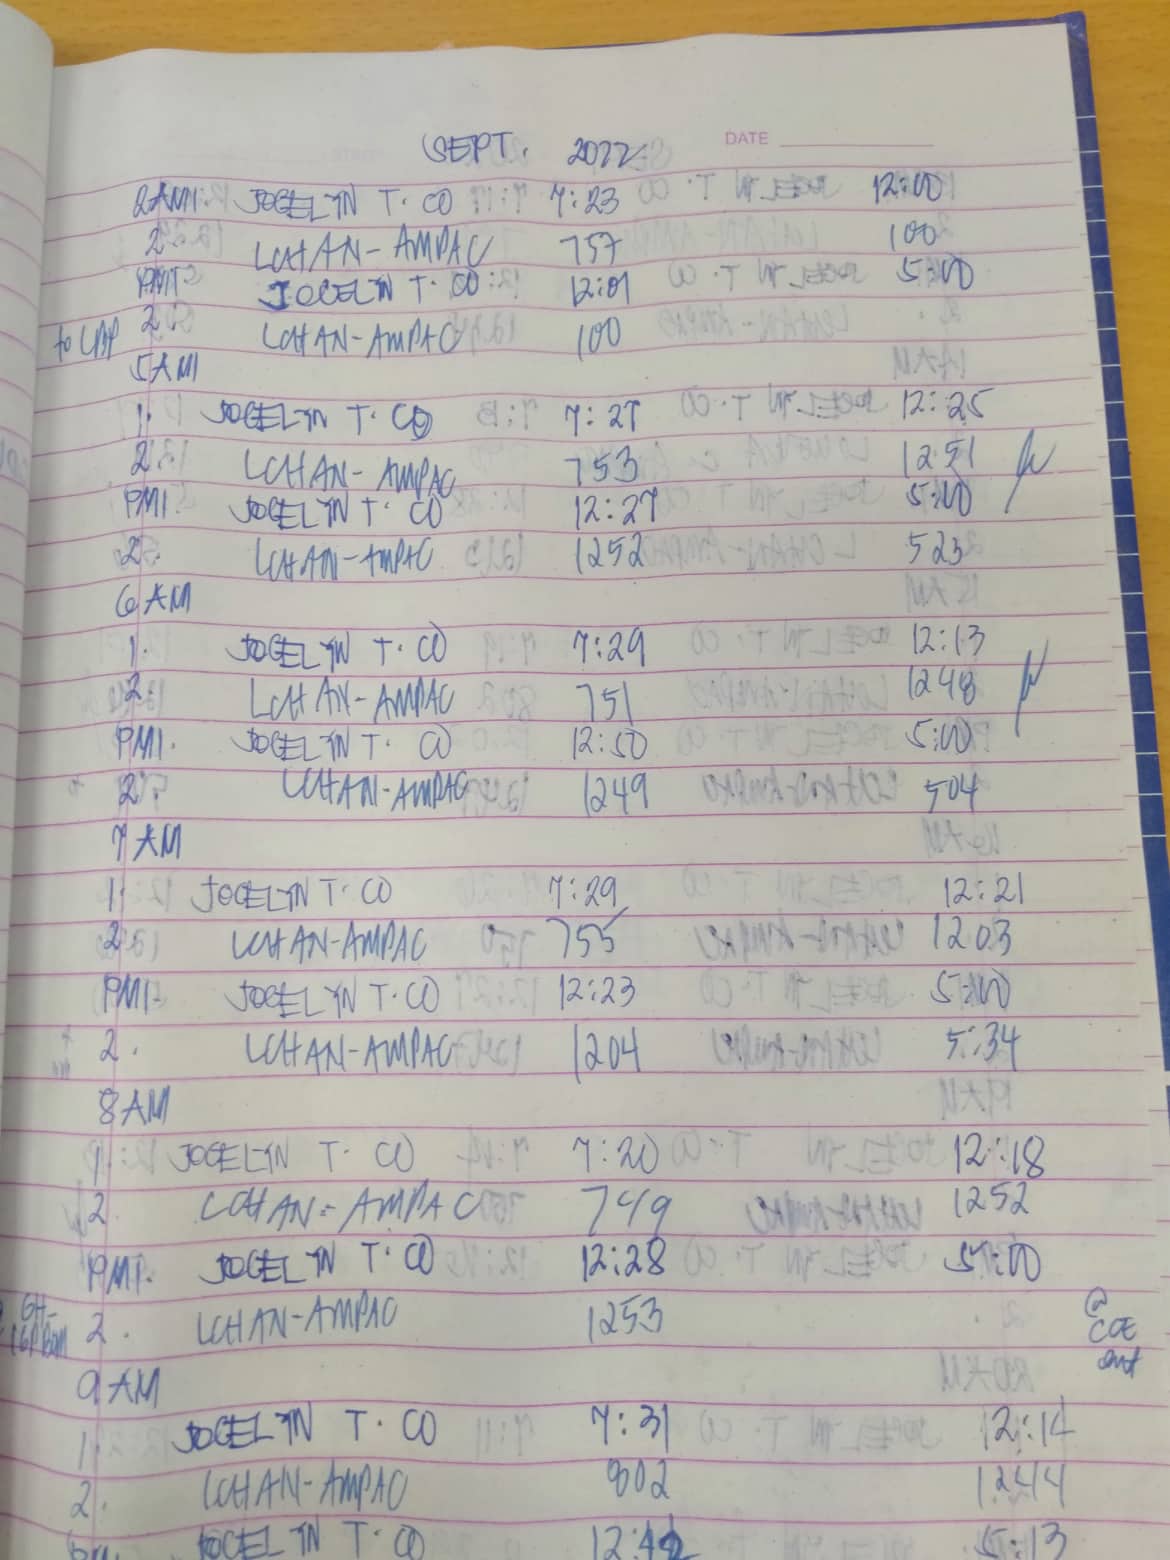 SEPT. 2022 DATE
2AM1. JOCELYN T. CO 7:23 12:00
2 LCHAN-AMPAC 757 100
PM1 JOCELYN T. CO 12:01 5:00
to LBP 2 LCHAN-AMPAC 100
5AM
1. JOCELYN T. CO 7:27 12:25
2. LCHAN-AMPAC 753 1251
PM1. JOCELYN T. CO 12:27 5:00
2. LCHAN-AMPAC 1252 523
6 AM
1. JOCELYN T. CO 7:29 12:13
2 LCHAN-AMPAC 751 1248
PM1. JOCELYN T. CO 12:50 5:00
2 LCHAN-AMPAC 1249 504
7 AM
1. JOCELYN T. CO 7:29 12:21
2 LCHAN-AMPAC 755 1203
PM1. JOCELYN T. CO 12:23 5:00
2. LCHAN-AMPAC 1204 5:34
8 AM
1 JOCELYN T. CO 7:20 12:18
2. LCHAN-AMPAC 749 1252
PM1. JOCELYN T. CO 12:28 5:00
2. LCHAN-AMPAC 1253 @ COE
9 AM
1. JOCELYN T. CO 7:31 12:14
2. LCHAN-AMPAC 802 1244
PM JOCELYN T. CO 12:42 5:13